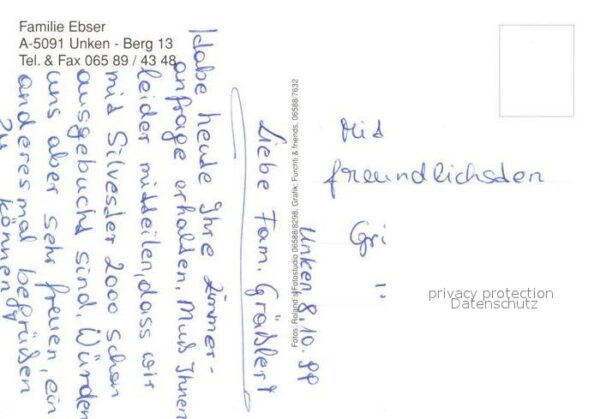 Familie Ebser
A-5091 Unken - Berg 13
Tel. & Fax 065 89 / 43 48
Unken 8.10.99
Liebe Fam. Gräßler!
Habe heute Ihre Zimmer-
anfrage erhalten. Muß Ihnen
leider mitteilen, dass wir
mit Silvester 2000 schon
ausgebucht sind. Würden
uns aber sehr freuen, ein
anderes mal begrüßen
zu können
Mit
freundlichsten
Grü
Fotos: Roland Fotostudio 06588/8298, Grafik: Furchti & friends, 06588/7632
privacy protection
Datenschutz